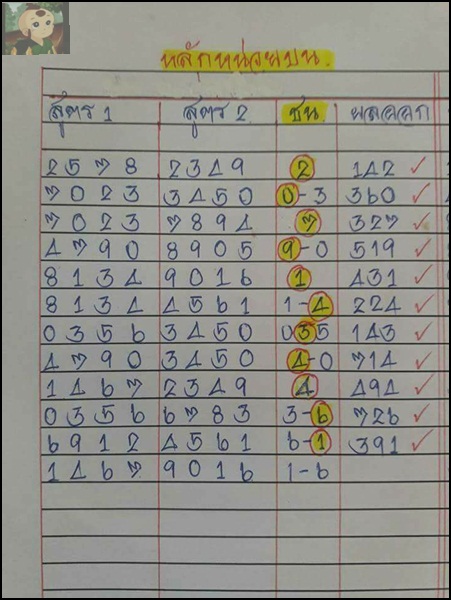 หลักหน่วยบน.
สูตร 1 สูตร 2 ชน. ผลออก
2578 2349 2 142 ✓
7023 3450 0-3 360 ✓
7023 7894 7 327 ✓
4790 8905 9-0 519 ✓
8134 9016 1 431 ✓
8134 4561 1-4 224 ✓
0356 3450 035 143 ✓
4790 3450 4-0 714 ✓
1467 2349 4 494 ✓
0356 6783 3-6 726 ✓
6912 4561 6-1 391 ✓
1467 9016 1-6